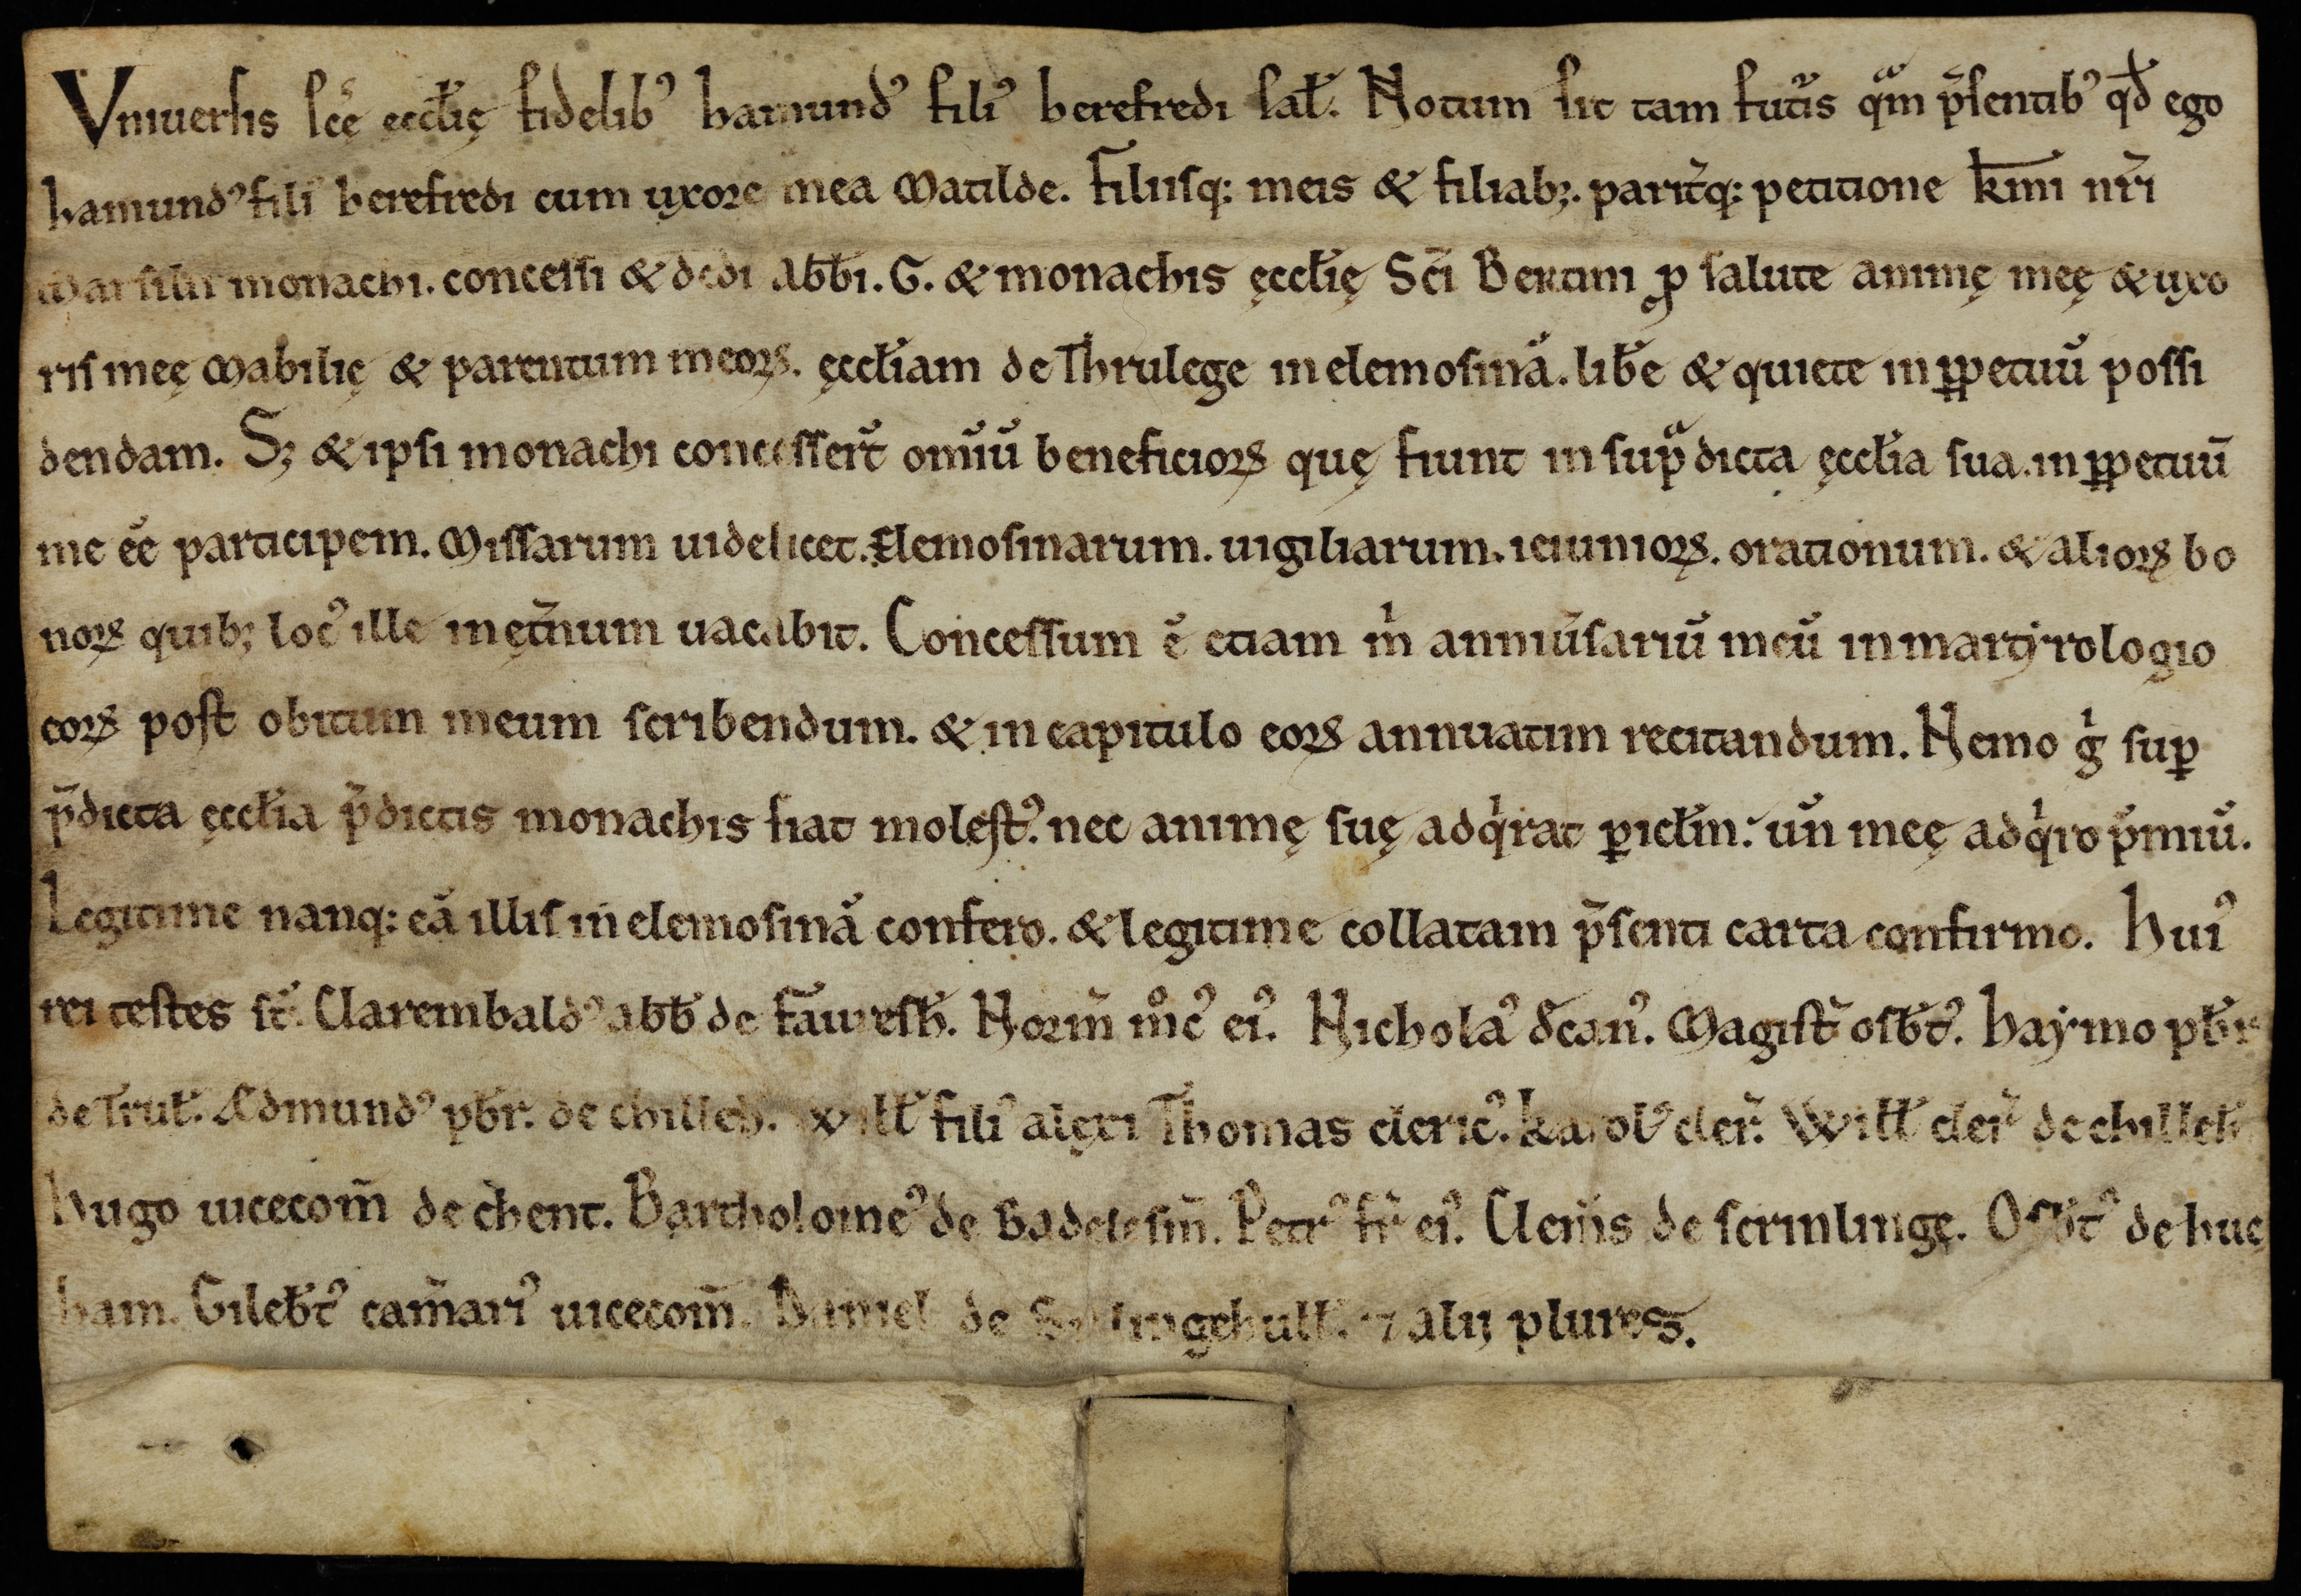 Vniuersis sc̄ę eccłię fidelib⁊ hamund⁊ fili⁊ herefredi sał. Notum sit tam futur̄s qᵃm p̄sentib⁊ qđ ego
hamund⁊ fili⁊ herefredi cum uxore mea Matilde. Filiisq: meis & filiab;. parit̄q: petitione k̄mi nr̄i
Marsilii monachi. concessi & dedi abb̄i. G. & monachis ęccłię Sc̄i Bertini ꝓ salute animę meę & uxo
ris meę Mabilię & parentum meoꝝ. ęccłiam de Thrulege in elemosinā. lib̄e & quiete in ꝑpetuū possi
dendam. S; & ipsi monachi concesser̄t om̄iū beneficioꝝ quę fiunt in supᵃdicta ęccłia sua. in ꝑpetuū
me eē participem. Missarum uidelicet. Elemosinarum. uigiliarum. ieiunioꝝ. orationum. & alioꝝ bo
noꝝ quib; loc⁊ ille in ęt̄num uacabit. Concessum ē etiam mⁱ anniūsariū meū in martyrologio
eoꝝ post obitum meum scribendum. & in capitulo eoꝝ annuatim recitandum. Nemo gⁱ suꝑ
p̄dicta ęccłia p̄dictis monachis fiat molest⁊. nec animę suę adqⁱrat ꝑicłm: un̄ meę adqⁱro p̄miū.
Legitime nanq: eā illis in elemosinā confero. & legitime collatam p̄senti carta confirmo. Hui⁊
rei testes st̄. Clarembald⁊ abb̄ de fauresh̄. Norm̄ mᵒc⁊ ei⁊. Nichola⁊ dēcan⁊. Magist̄ osb̄t⁊. Haymo pb̄r
de Truł. Ædmund⁊ pb̄r. de chilleh̄. Wiłł fili⁊ alęxi Thomas cleric⁊. karol⁊ cler̄. Wiłł cler̄ de chilleh̄
Hugo uicecom̄ de chent. Bartholome⁊ de Badelesm̄. Petr⁊ fr̄ ei⁊. Clem̄s de scrinlinge. Osb̄t⁊ de huc
ham. Gileb̄t⁊ cam̄ari⁊ uicecom̄. Daniel de ⁊ alij plures.